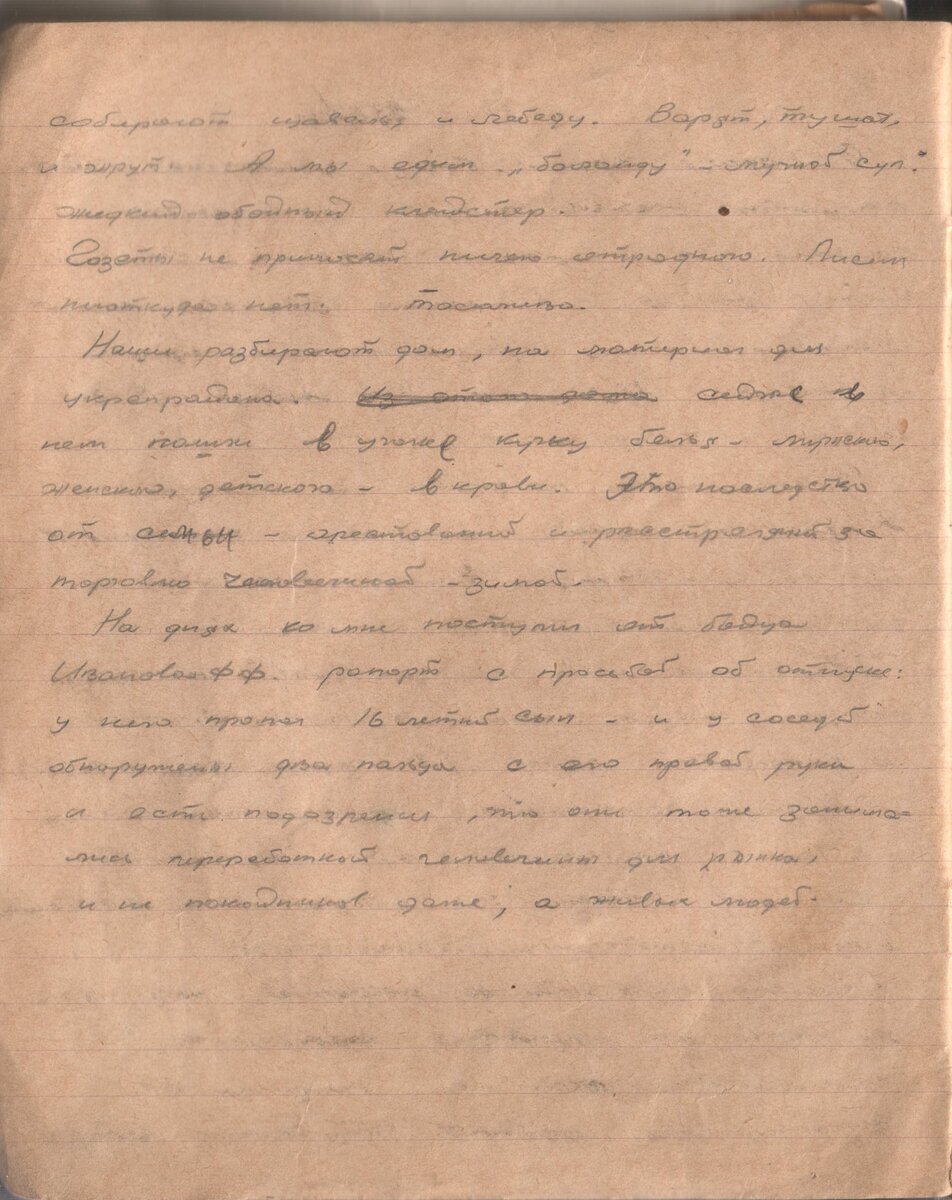 собирают щавель и лебеду. Варят, тушат,
и жрут. А мы едим „баланду" – мучной суп.
жидкий обойный клейстер.
Газеты не приносят ничего отрадного. Писем
ниоткуда нет. Тоскливо.
Наши разбирают дом, на материал для
укрепрайона. Из этого дома сегодня в
нем нашли в уголке кучку белья – мужского,
женского, детского – в крови. Это последство
от семьи – арестованной и расстрелянной за
торговлю человечиной – зимой.
На днях ко мне поступил от бойца
Иванова ФФ. рапорт с просьбой об отпуске:
у него пропал 16 летний сын – и у соседей
обнаружены два пальца с его правой руки
и есть подозрения, что они тоже занима-
лись переработкой человечины для рынка,
и не покойников даже, а живых людей.